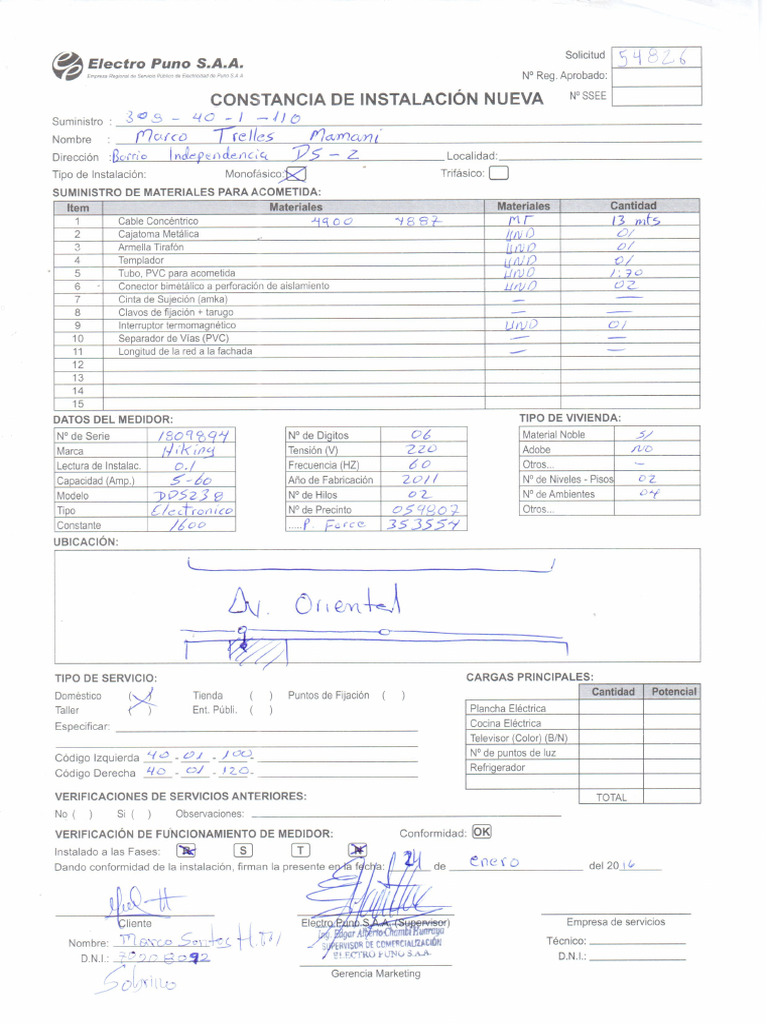 Electro Puno S.A.A.
Empresa Regional de Servicio Público de Electricidad de Puno S.A.A.
Solicitud 54826
Nº Reg. Aprobado:
CONSTANCIA DE INSTALACIÓN NUEVA Nº SSEE
Suministro : 309 - 40 - 1 - 110
Nombre : Marco Trelles Mamani
Dirección : Barrio Independencia D5 - 2 Localidad:
Tipo de Instalación: Monofásico: X Trifásico:
SUMINISTRO DE MATERIALES PARA ACOMETIDA:
Item Materiales Materiales Cantidad
1 Cable Concéntrico 4900 4887 MT 13 mts
2 Cajatoma Metálica UND 01
3 Armella Tirafón UND 01
4 Templador UND 01
5 Tubo, PVC para acometida UND 1.70
6 Conector bimetálico a perforación de aislamiento UND 02
7 Cinta de Sujeción (amka) — —
8 Clavos de fijación + tarugo — —
9 Interruptor termomagnético UND 01
10 Separador de Vías (PVC) — —
11 Longitud de la red a la fachada — —
12
13
14
15
DATOS DEL MEDIDOR: TIPO DE VIVIENDA:
Nº de Serie 1809894 Nº de Digitos 06 Material Noble SI
Marca Hiking Tensión (V) 220 Adobe NO
Lectura de Instalac. 0.1 Frecuencia (HZ) 60 Otros... —
Capacidad (Amp.) 5-60 Año de Fabricación 2011 Nº de Niveles - Pisos 02
Modelo DDS238 Nº de Hilos 02 Nº de Ambientes 04
Tipo Electronico Nº de Precinto 059807 Otros...
Constante 1600 .....P. Force 353554
UBICACIÓN:
Av. Oriental
TIPO DE SERVICIO: CARGAS PRINCIPALES:
Cantidad Potencial
Doméstico (X) Tienda ( ) Puntos de Fijación ( )
Taller ( ) Ent. Públi. ( )
Especificar:
Plancha Eléctrica
Cocina Eléctrica
Televisor (Color) (B/N)
Nº de puntos de luz
Refrigerador
TOTAL
Código Izquierda 40 - 01 - 100 -
Código Derecha 40 - 01 - 120 -
VERIFICACIONES DE SERVICIOS ANTERIORES:
No ( ) Si ( ) Observaciones:
VERIFICACIÓN DE FUNCIONAMIENTO DE MEDIDOR: Conformidad: OK
Instalado a las Fases: R S T N
Dando conformidad de la instalación, firman la presente en la fecha: 24 de enero del 2016
Cliente Electro Puno S.A.A. (Supervisor) Empresa de servicios
Ing. Edgar Alberto Chambi Huaraya
SUPERVISOR DE COMERCIALIZACIÓN
ELECTRO PUNO S.A.A.
Nombre: Marco Santos H. Técnico:
D.N.I.: D.N.I.:
Gerencia Marketing
Sobrino